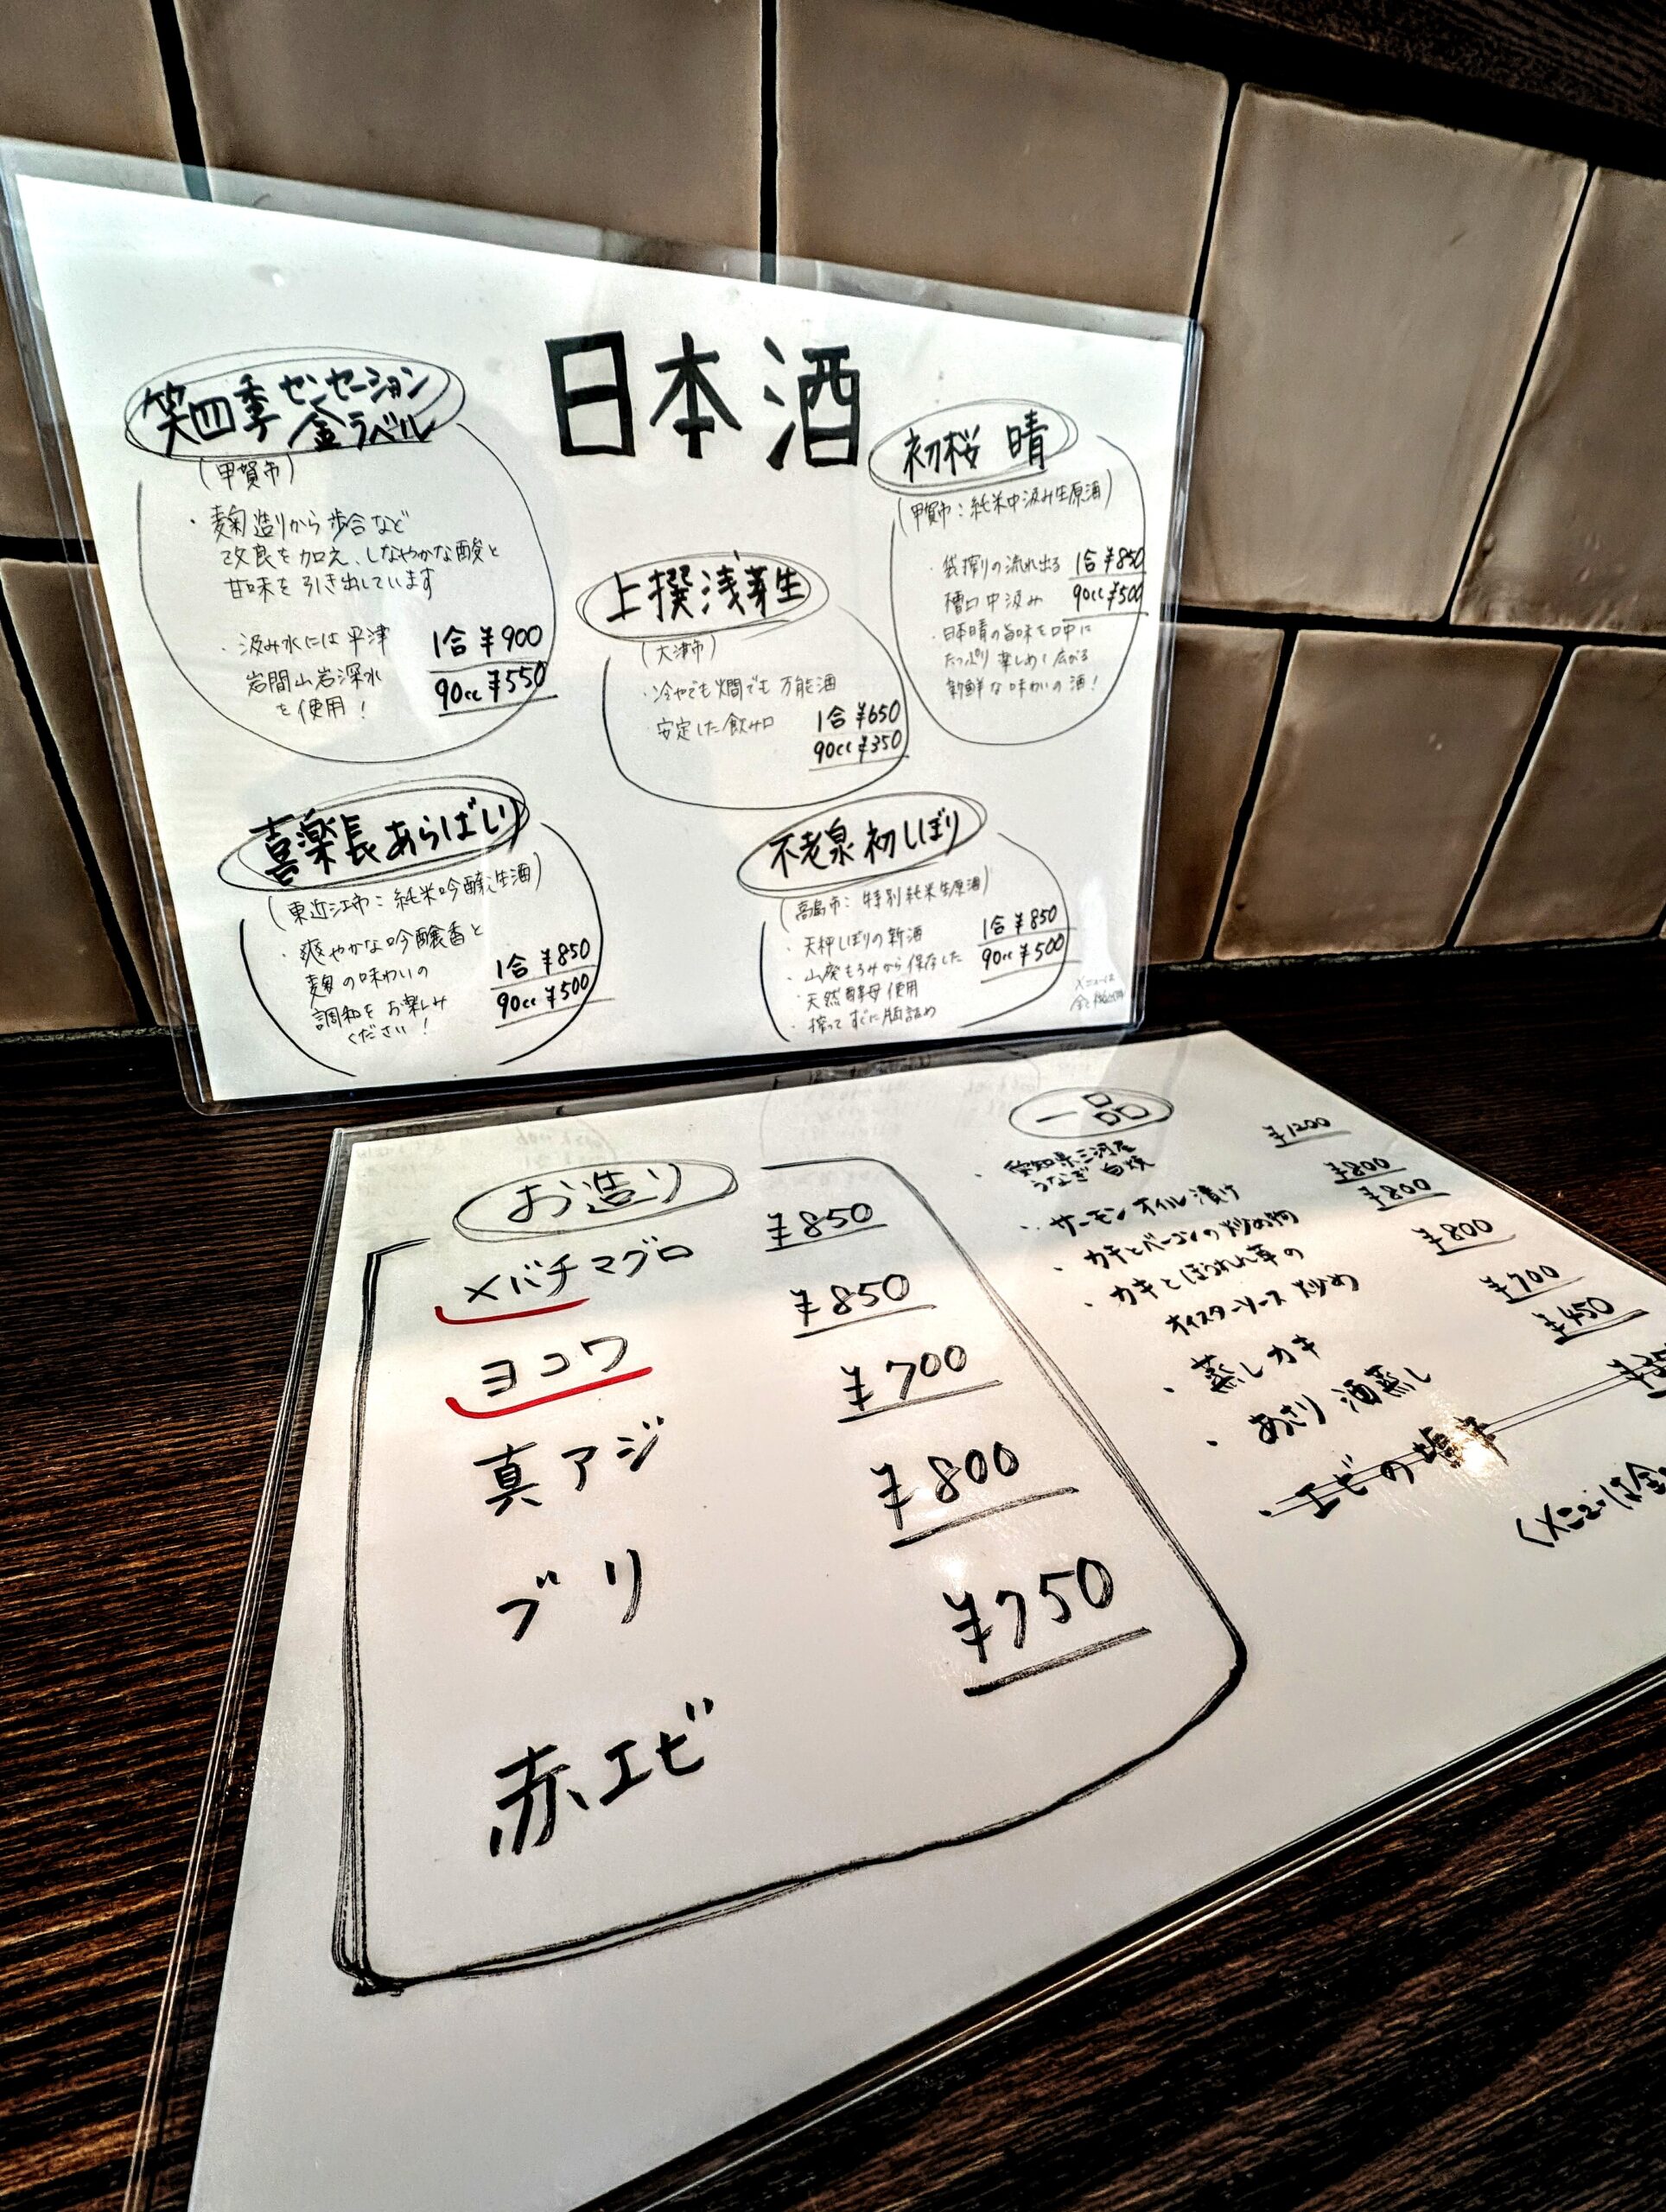 日本酒
笑四季 センセーション
金ラベル
(甲賀市)
・麹造りから歩合など
改良を加え、しなやかな酸と
甘味を引き出しています
・汲み水には平津
岩間山岩深水
を使用!
1合 ¥900
90cc ¥550
上撰浅芽生
(大津市)
・冷やでも燗でも万能酒
・安定した飲み口
1合 ¥650
90cc ¥350
初桜 晴
(甲賀市:純米中汲み生原酒)
・袋搾りの流れ出る
槽口中汲み
1合 ¥850
90cc ¥500
・日本晴の旨味を口中に
たっぷり楽しめ、広がる
新鮮な味わいの酒!
喜楽長 あらばしり
(東近江市:純米吟醸生酒)
・爽やかな吟醸香と
麹の味わいの
調和をお楽しみ
ください!
1合 ¥850
90cc ¥500
不老泉 初しぼり
(高島市:特別純米生原酒)
・天秤しぼりの新酒
・山廃もろみから保存した
・天然酵母使用
・搾ってすぐに瓶詰め
1合 ¥850
90cc ¥500
メニューは
お造り
メバチマグロ ¥850
ヨコワ ¥850
真アジ ¥700
ブリ ¥800
赤エビ ¥750
一品
・愛知県三河産
うなぎ白焼 ¥1200
・サーモンオイル漬け ¥800
・カキとベーコンの炒め物 ¥800
・カキとほうれん草の
オイスターソース炒め ¥800
・蒸しカキ ¥700
・あさり酒蒸し ¥450
・エビの塩
(メニューは